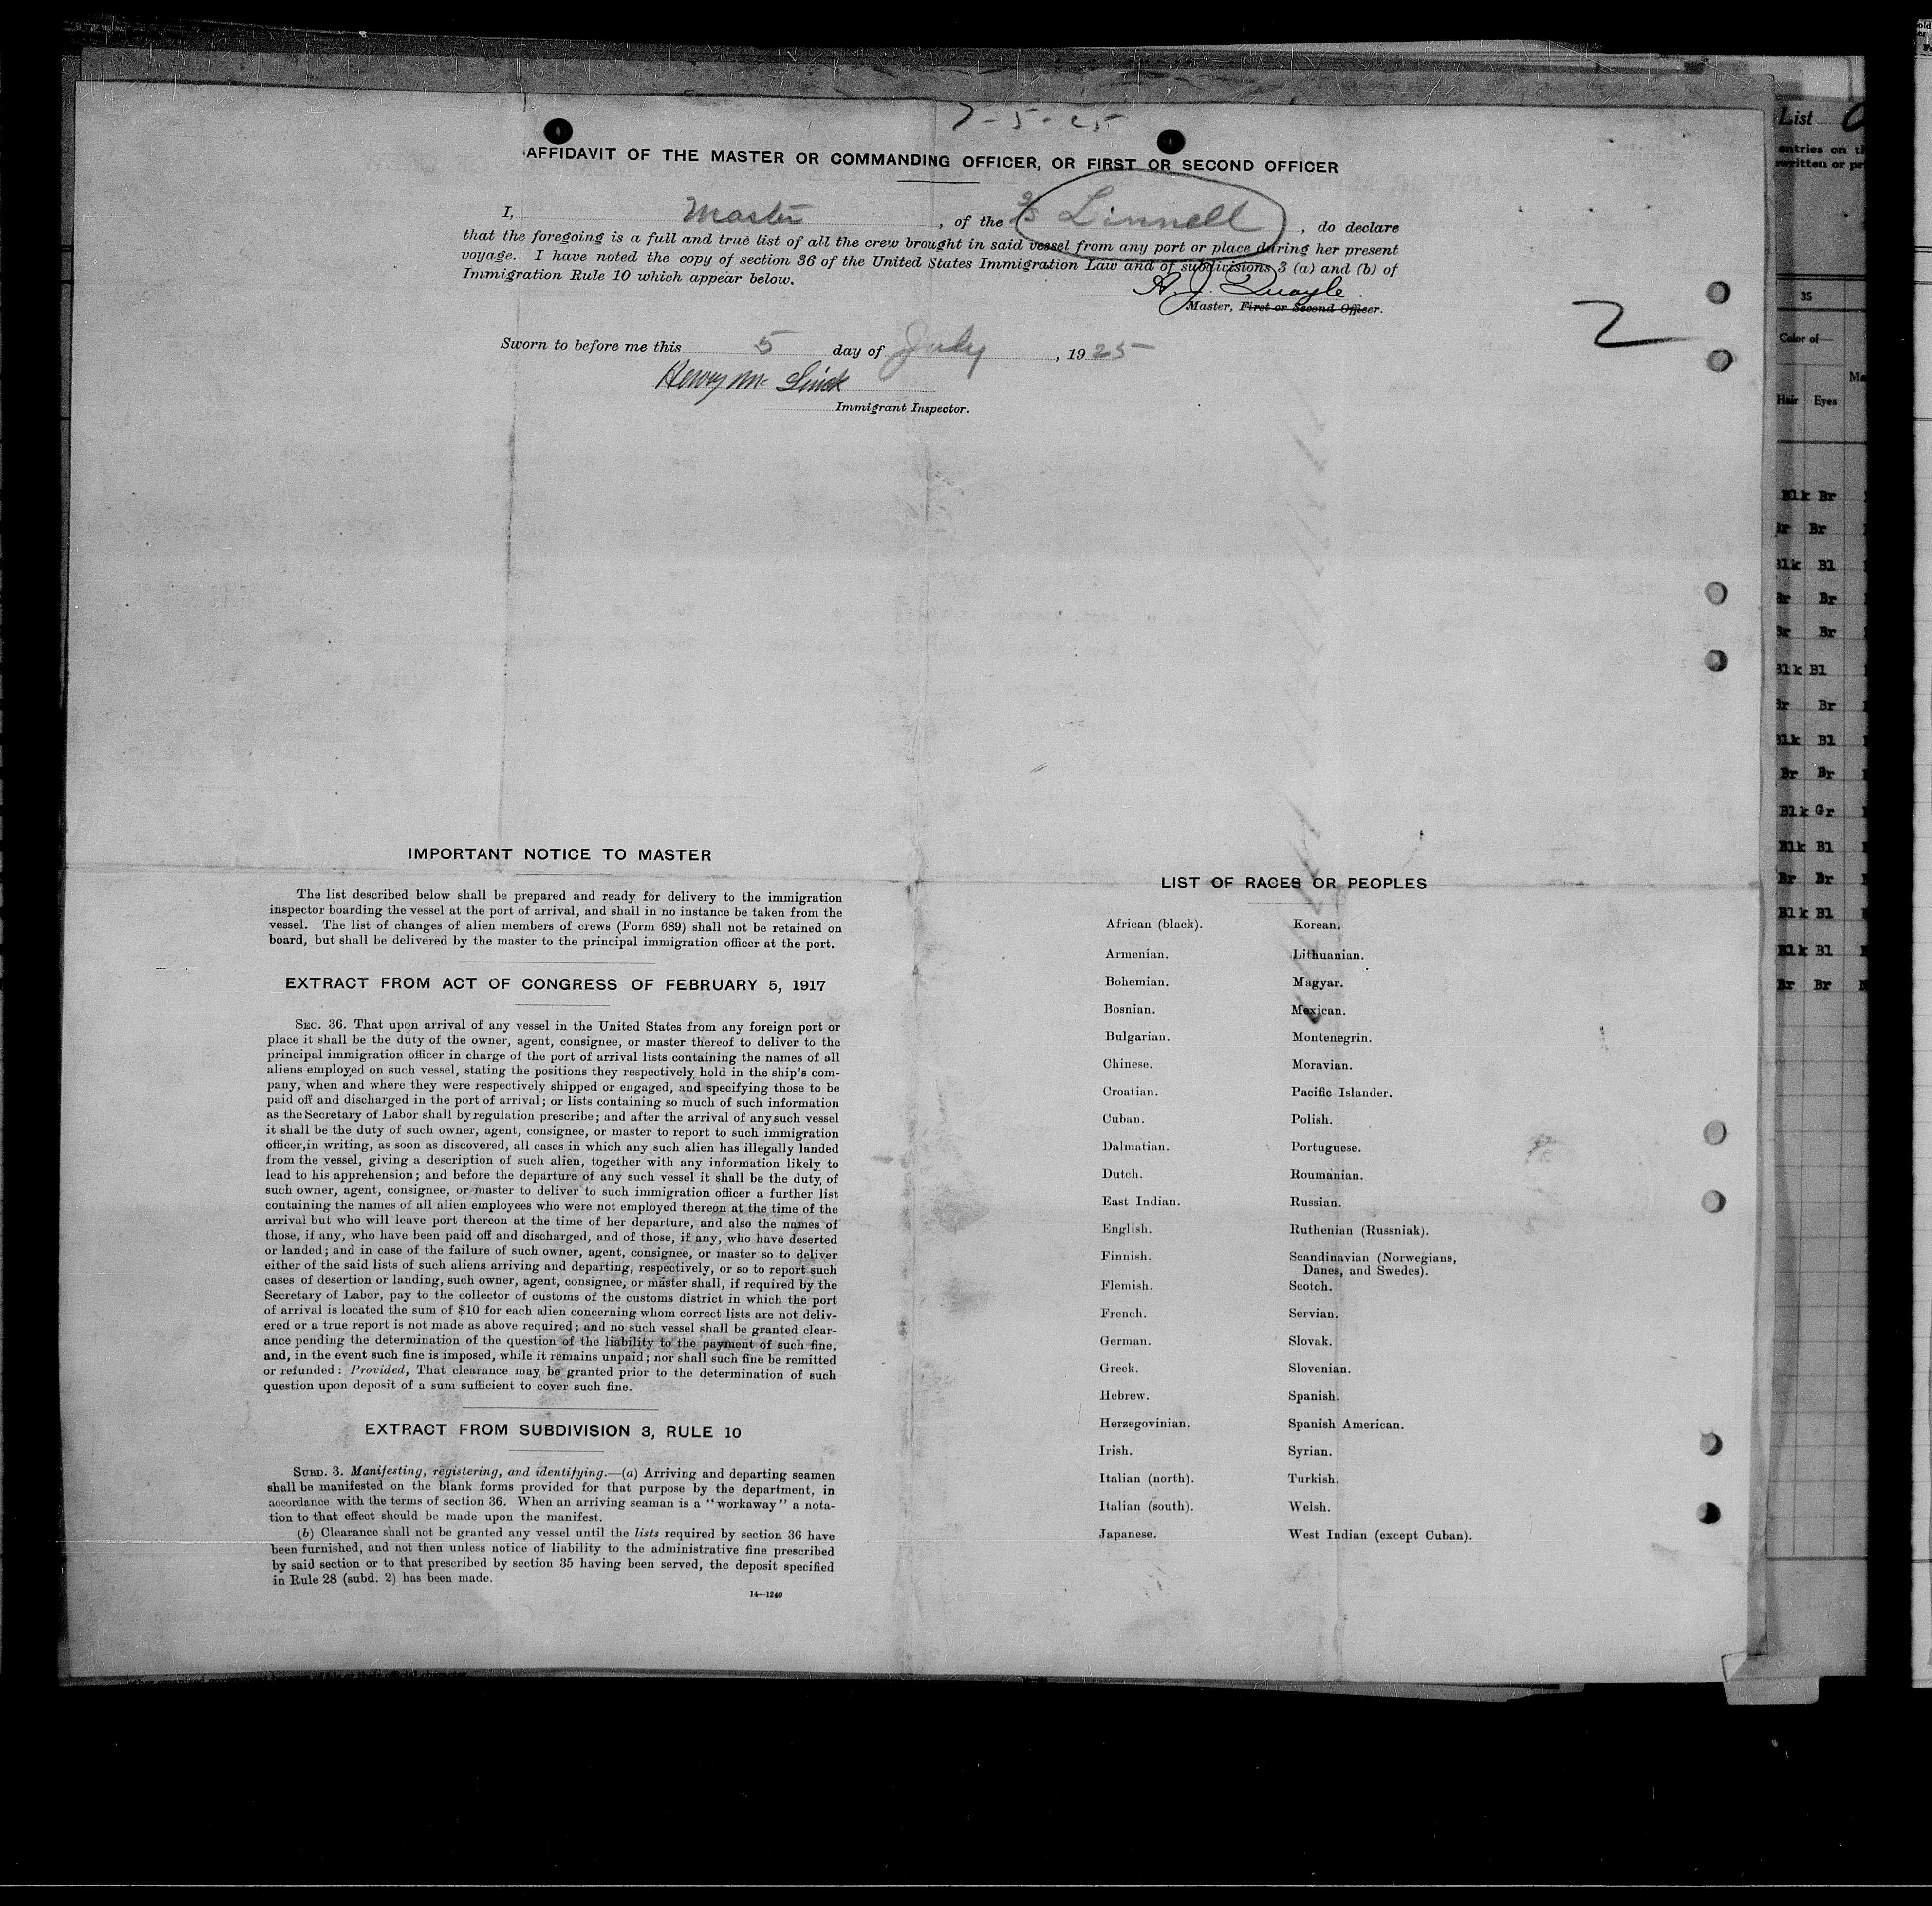 7-5-25
AFFIDAVIT OF THE MASTER OR COMMANDING OFFICER, OR FIRST OR SECOND OFFICER
I, Master, of the S/S Linnell, do declare
that the foregoing is a full and true list of all the crew brought in said vessel from any port or place during her present
voyage. I have noted the copy of section 36 of the United States Immigration Law and of subdivisions 3 (a) and (b) of
Immigration Rule 10 which appear below.
A. J. Quayle
Master, First or Second Officer.
2
Sworn to before me this 5 day of July, 1925
Henry M.
Immigrant Inspector.
IMPORTANT NOTICE TO MASTER
The list described below shall be prepared and ready for delivery to the immigration
inspector boarding the vessel at the port of arrival, and shall in no instance be taken from the
vessel. The list of changes of alien members of crews (Form 689) shall not be retained on
board, but shall be delivered by the master to the principal immigration officer at the port.
EXTRACT FROM ACT OF CONGRESS OF FEBRUARY 5, 1917
SEC. 36. That upon arrival of any vessel in the United States from any foreign port or
place it shall be the duty of the owner, agent, consignee, or master thereof to deliver to the
principal immigration officer in charge of the port of arrival lists containing the names of all
aliens employed on such vessel, stating the positions they respectively hold in the ship's com-
pany, when and where they were respectively shipped or engaged, and specifying those to be
paid off and discharged in the port of arrival; or lists containing so much of such information
as the Secretary of Labor shall by regulation prescribe; and after the arrival of any such vessel
it shall be the duty of such owner, agent, consignee, or master to report to such immigration
officer, in writing, as soon as discovered, all cases in which any such alien has illegally landed
from the vessel, giving a description of such alien, together with any information likely to
lead to his apprehension; and before the departure of any such vessel it shall be the duty of
such owner, agent, consignee, or master to deliver to such immigration officer a further list
containing the names of all alien employees who were not employed thereon at the time of the
arrival but who will leave port thereon at the time of her departure, and also the names of
those, if any, who have been paid off and discharged, and of those, if any, who have deserted
or landed; and in case of the failure of such owner, agent, consignee, or master so to deliver
either of the said lists of such aliens arriving and departing, respectively, or so to report such
cases of desertion or landing, such owner, agent, consignee, or master shall, if required by the
Secretary of Labor, pay to the collector of customs of the customs district in which the port
of arrival is located the sum of $10 for each alien concerning whom correct lists are not deliv-
ered or a true report is not made as above required; and no such vessel shall be granted clear-
ance pending the determination of the question of the liability to the payment of such fine,
and, in the event such fine is imposed, while it remains unpaid; nor shall such fine be remitted
or refunded: Provided, That clearance may be granted prior to the determination of such
question upon deposit of a sum sufficient to cover such fine.
EXTRACT FROM SUBDIVISION 3, RULE 10
SUBD. 3. Manifesting, registering, and identifying.—(a) Arriving and departing seamen
shall be manifested on the blank forms provided for that purpose by the department, in
accordance with the terms of section 36. When an arriving seaman is a "workaway" a nota-
tion to that effect should be made upon the manifest.
(b) Clearance shall not be granted any vessel until the lists required by section 36 have
been furnished, and not then unless notice of liability to the administrative fine prescribed
by said section or to that prescribed by section 35 having been served, the deposit specified
in Rule 28 (subd. 2) has been made.
14—1240
LIST OF RACES OR PEOPLES
African (black). Korean.
Armenian. Lithuanian.
Bohemian. Magyar.
Bosnian. Mexican.
Bulgarian. Montenegrin.
Chinese. Moravian.
Croatian. Pacific Islander.
Cuban. Polish.
Dalmatian. Portuguese.
Dutch. Roumanian.
East Indian. Russian.
English. Ruthenian (Russniak).
Finnish. Scandinavian (Norwegians,
Danes, and Swedes).
Flemish. Scotch.
French. Servian.
German. Slovak.
Greek. Slovenian.
Hebrew. Spanish.
Herzegovinian. Spanish American.
Irish. Syrian.
Italian (north). Turkish.
Italian (south). Welsh.
Japanese. West Indian (except Cuban).
List
entries on
written or
35
Color of—
Hair Eyes
Blk Br
Br Br
Blk Bl
Br Br
Br Br
Blk Bl
Br Br
Blk Bl
Br Br
Blk Gr
Blk Bl
Br Br
Blk Bl
Blk Bl
Br Br